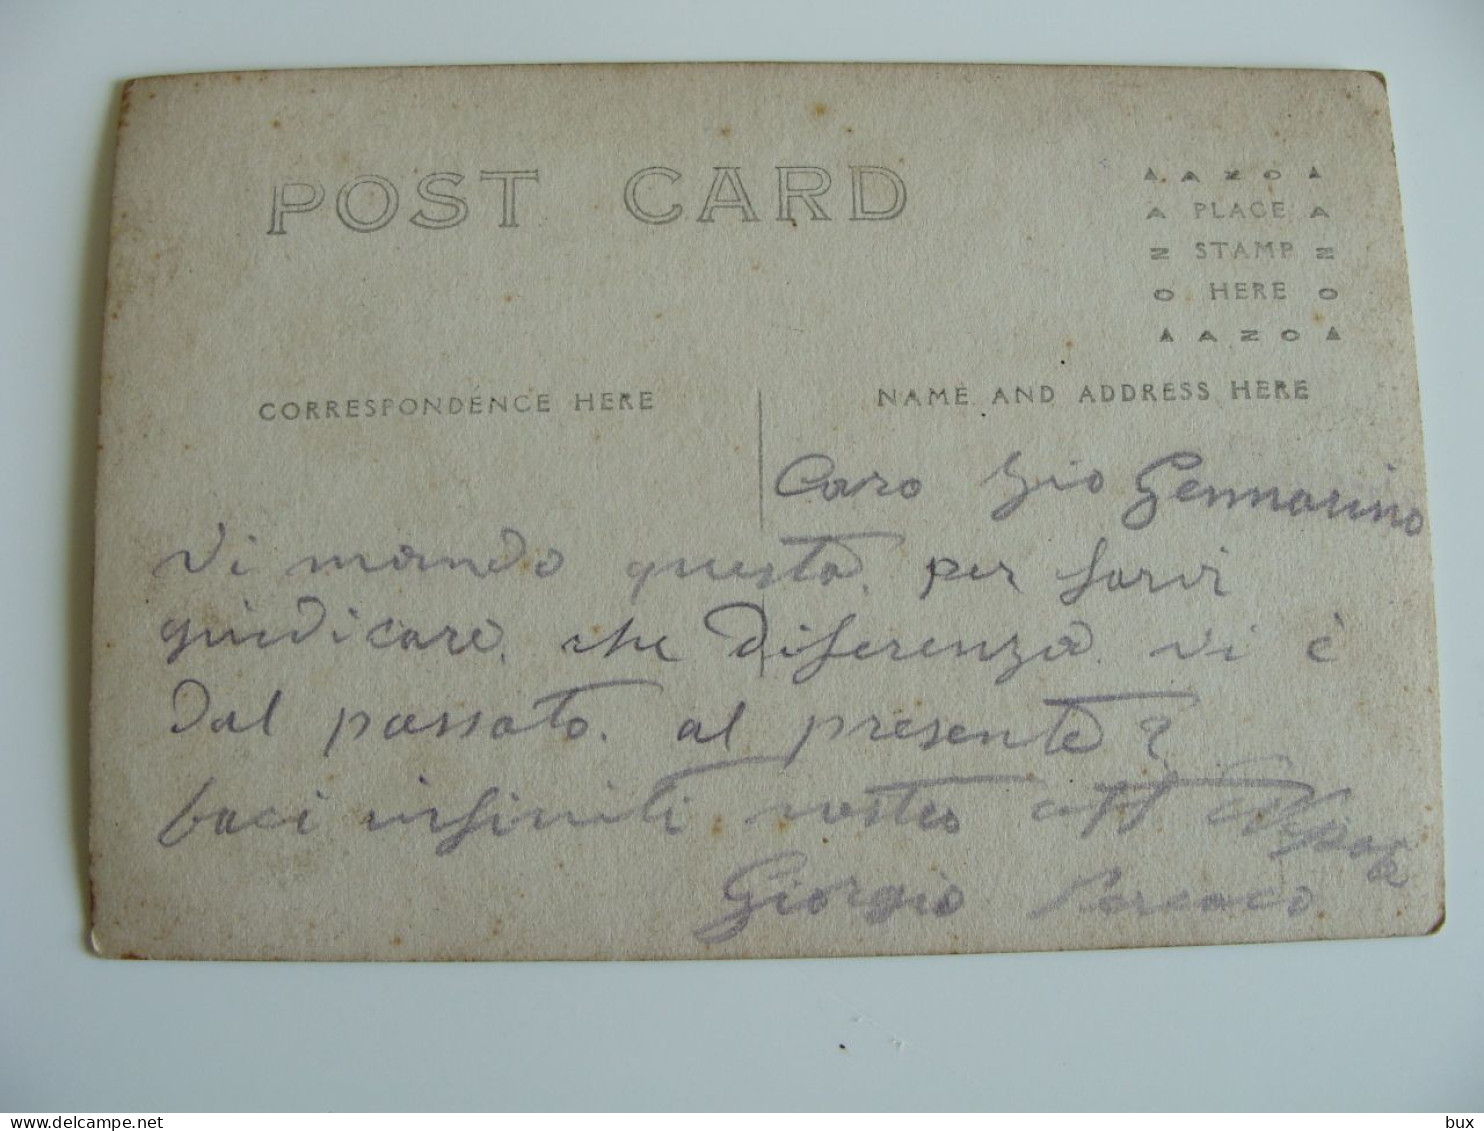 POST CARD
▲ AZO ▲
A PLACE A
Z STAMP Z
O HERE O
▲ AZO ▲
CORRESPONDENCE HERE
NAME AND ADDRESS HERE
Caro Zio Gennarino
Vi mando questa. per farvi
giudicare. che diferenza. vi è
dal passato. al presente?
baci infiniti vostro aff Nipote
Giorgio
bux